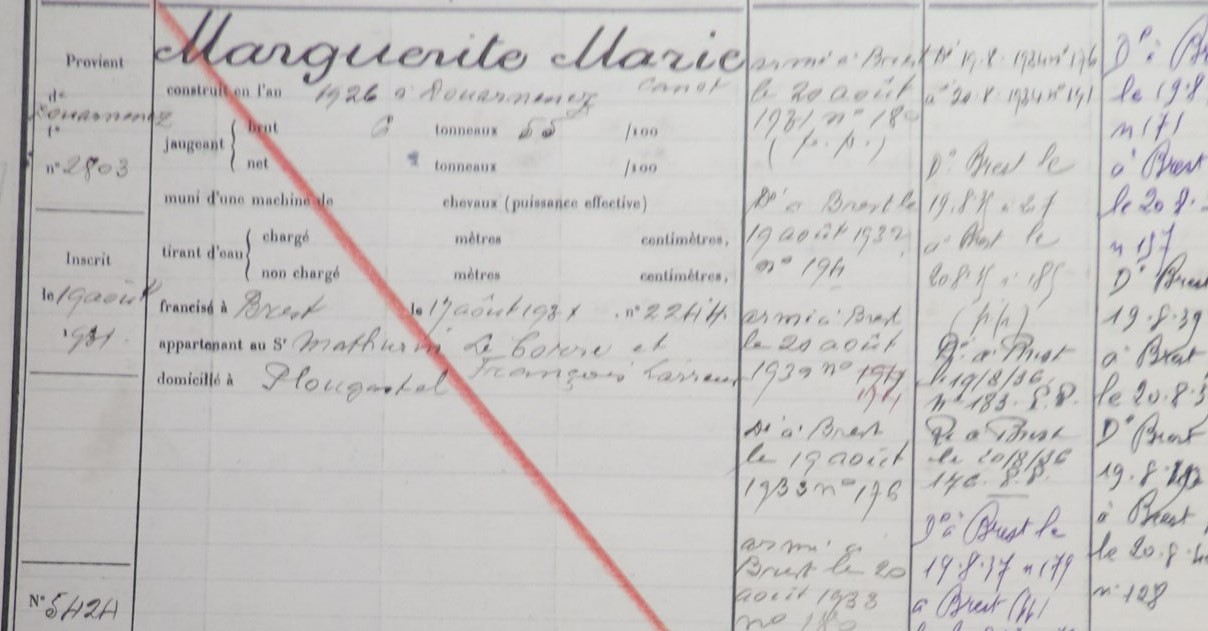 Provient
de
Douarnenez
f°
n° 2803
Inscrit
le 19 août
1931.
N° 5424
Marguerite Marie
construit en l'an 1926 à Douarnenez canot
jaugeant
brut 6 tonneaux 55 /100
net tonneaux /100
muni d'une machine de chevaux (puissance effective)
tirant d'eau
chargé mètres centimètres,
non chargé mètres centimètres,
francisé à Brest le 17 août 1931, n° 2244.
appartenant au Sr Mathurin Le et
François
domicilié à Plougastel
armé à Brest
le 20 août
1931 n° 180
(p.p.)
Dé à Brest le
19 août 1932
n° 194
armé à Brest
le 20 août
1932 n°
Dé à Brest
le 19 août
1933 n° 176
armé à
Brest le 20
août 1933
n° 180
Dé 19.8.1934 n° 176
a 20.8.1934 n° 191
Dé Brest le
19.8.35 n 27
a Brest le
20 8 35 n 185
(pp)
Dé à Brest
le 19/8/36
n° 183. P.P.
Ré a Brest
le 20/8/36
176. P.P.
Dé à Brest le
19.8.37 n 179
a Brest (pp)
Dé à
le 19.8
n 171
à Brest
le 20.8.
n 157
Dé Brest
19.8.39
à Brest
le 20.8.3
Dé Brest
19.8.
à Brest
le 20.8.
n° 128